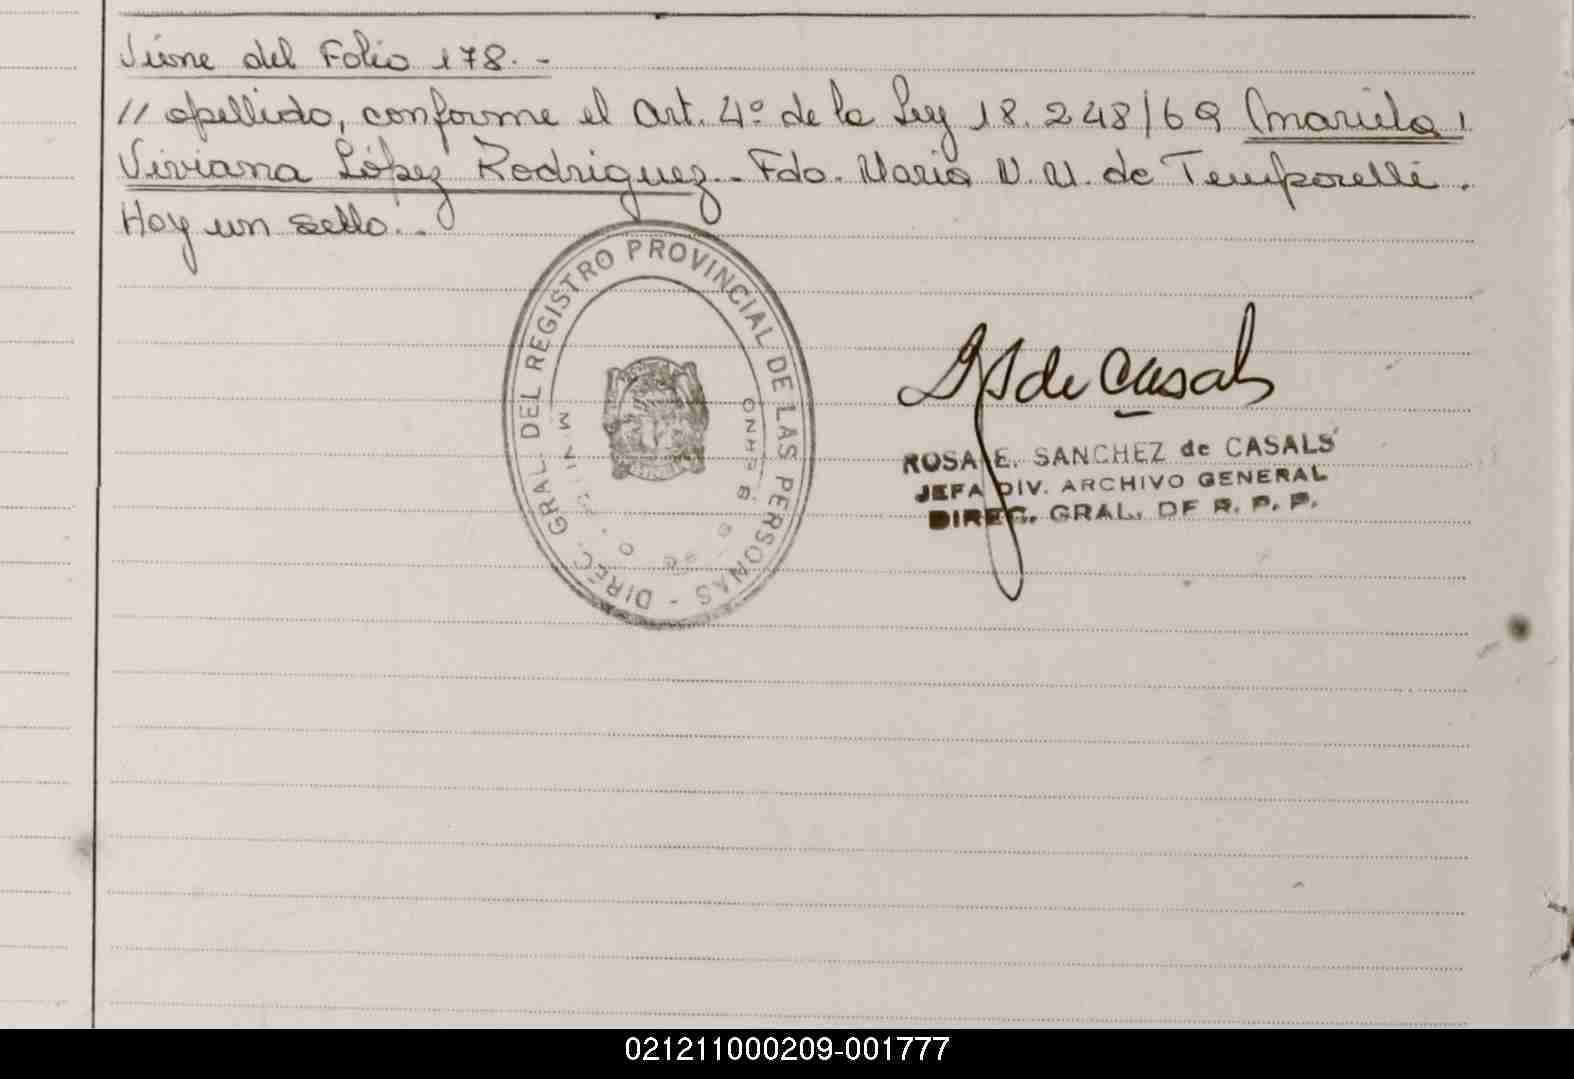 Viene del Folio 178.-
// apellido, conforme el Art. 4º de la Ley 18.248/69 (Mariela
Viviana López Rodriguez.- Fdo. Maria N. U. de Temporelli.
Hay un sello..-
DIREC. GRAL. DEL REGISTRO PROVINCIAL DE LAS PERSONAS -
S de Casals
ROSA E. SANCHEZ de CASALS
JEFA DIV. ARCHIVO GENERAL
DIREC. GRAL. DE R. P. P.
021211000209-001777